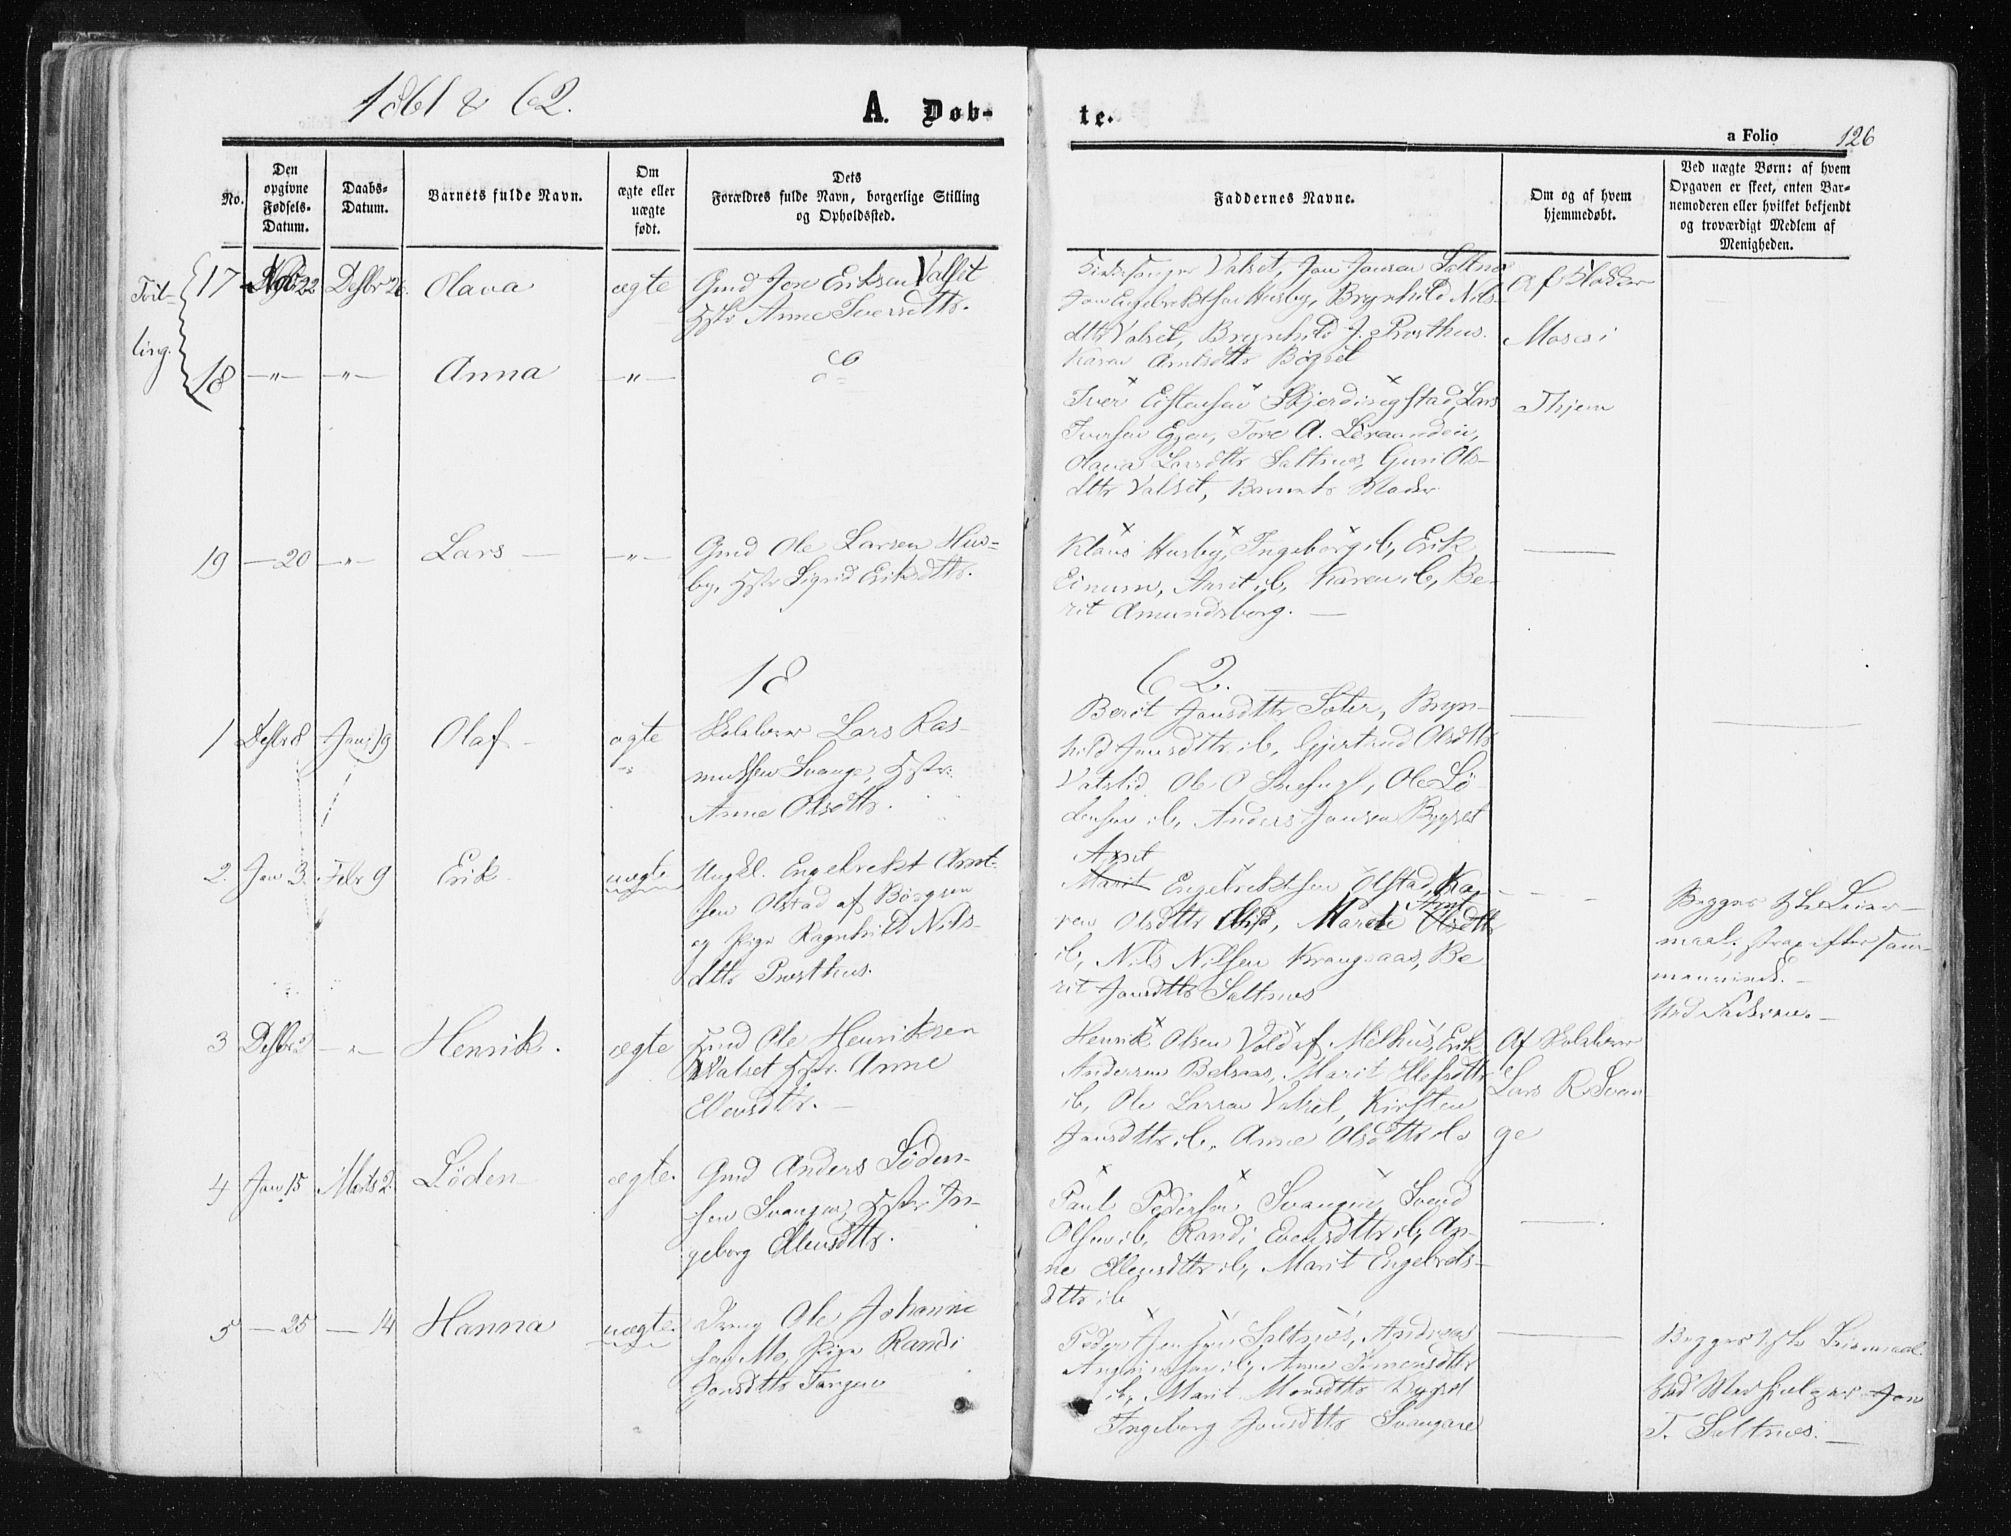 1861 & 62.
A. Døb-
te.
a Folio 126
No.
Den opgivne Fødsels-Datum.
Daabs-Datum.
Barnets fulde Navn.
Om ægte eller uægte født.
Dets Forældres fulde Navn, borgerlige Stilling og Opholdssted.
Faddernes Navne.
Om og af hvem hjemmedøbt.
Ved uægte Børn: af hvem Opgaven er skeet, enten Barnemoderen eller hvilket bekjendt og troværdigt Medlem af Menigheden.
Tvil-
ling.
17 22 Desbr 26 Olava ægte
Gmd Jon Eriksen Valset
Hstr Anne Iversdttr.
Valset, Jon Jonsen Saltnes
Jon Engebrektsen Husby, Brynhild Nils-
dttr Valset, Brynhild J. Prosthus.
Karen Arntsdttr Bögset
Af Moder
18 -"- -"- Anna -"-
Iver Eistensen Skjerdingstad, Lars
Iversen Egjen, Tore A. Leraanden,
Olava Larsdttr Saltnes, Guri Ols-
dttr Valset, Barnets Moder
19 - 20 -"- Lars - -"-
Gmd Ole Larsen Hus-
by, Hstr Sigrid Eriksdttr.
Klaus Husby, Ingeborg ib, Erik
Einum, Marit ib, Karen ib, Be-
rit Amundsborg. -
18
62.
1 Desbr 8 Jan 19 Olaf - ægte
Skolelærer Lars Ras-
mussen Svange, Hstr:
Anne Olsdttr.
Berit Jonsdttr Sæter, Bryn-
hild Jonsdttr ib, Gjertrud Olsdttr
Ole Lö-
densen ib, Anders Jonsen Bygset
2. Jan 3. Febr 9 Erik uægte
Ungkl. Engebrekt Arnt-
sen Olstad af Börgsen
og Pige Ragnhild Nils-
dttr Prosthus.
Arnt
Marit Engebrektsen Olstad, Ka-
ren Olsdttr ibid, Marit Olsdttr
ib, Nils Nilsen Krangsaas, Be-
rit Jonsdttr Saltnes
Begges 1ste Leier-
maal, strax efter Sam-
menvied. -
Ved Faderen. -
3 Desbr 2 -"- Henrik. ægte
Gmd Ole Henriksen
Valset Hstr. Anne
Ellensdttr. -
Henrik Olsen Vold af Melhus, Erik
Andersen Belsaas, Marit Ellefsdttr
ib, Ole Larsen Valset, Kirsten
Jonsdttr ib, Anne Olsdttr ib
Af Skolelærer
Lars R Svan-
ge
4 Jan 15 Marts 2 Löden ægte.
Gmd Anders Löden-
sen Svangen, Hstr In-
geborg Ellensdttr.
Paul Pedersen Svangen, Svend
Olsen ib, Randi Evensdttr ib, An-
ne Ellensdttr ib, Marit Engebrets-
dttr ib
5 - 25 - 14 Hanna uægte.
Dreng Ole Johanne-
sen Mo, Pige Randi
Jonsdttr Tangen
Peder Jensen Saltnes, Andreas
ib, Anne Simonsdttr
ib, Marit Monsdttr Bygset
Ingeborg Jonsdttr Svangare
Begges 1ste Leiermaal
Ved Jon
T. Saltnes. -